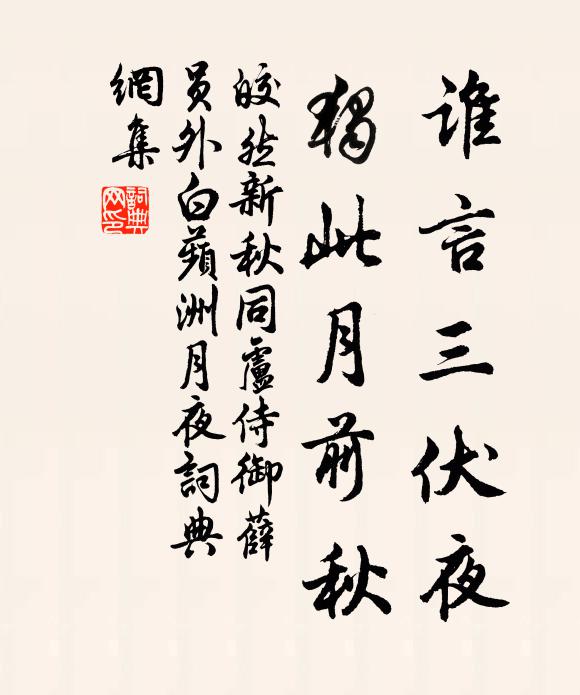 谁言三伏夜
獨此月前秋
皎然新秋同盧侍御薛
员外白蘋洲月夜詞典
網集
詞典
网印